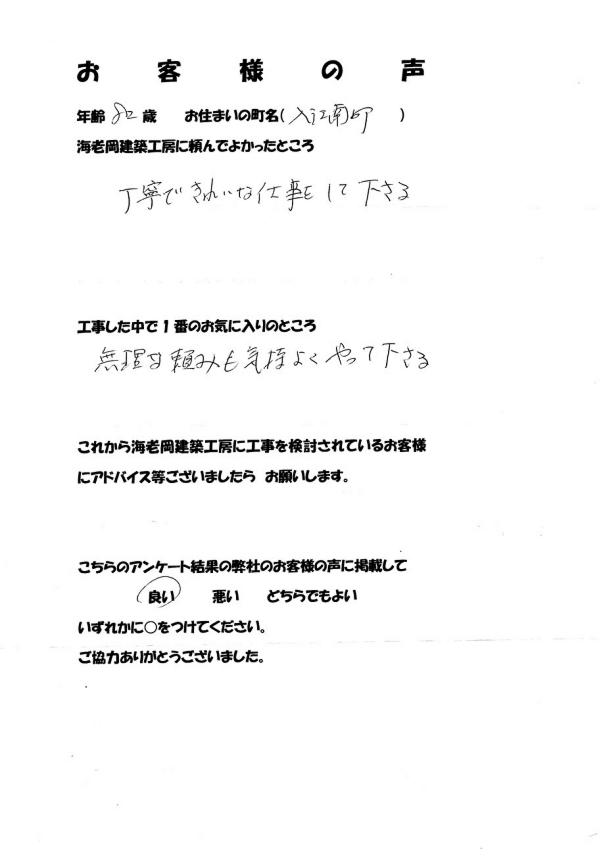 お客様の声
年齢 82 歳 お住まいの町名( 入江南町 )
海老岡建築工房に頼んでよかったところ
丁寧できれいな仕事をして下さる
工事した中で1番のお気に入りのところ
無理な頼みも気持よくやって下さる
これから海老岡建築工房に工事を検討されているお客様
にアドバイス等ございましたら お願いします。
こちらのアンケート結果の弊社のお客様の声に掲載して
良い 悪い どちらでもよい
いずれかに○をつけてください。
ご協力ありがとうございました。